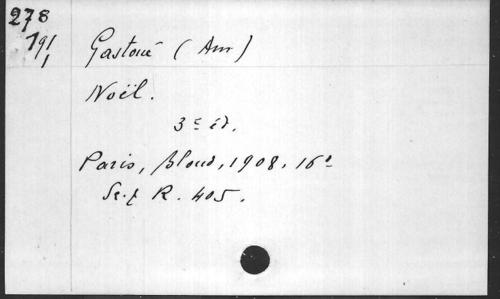 278
191
1
Gastoué (Am)
Noël.
3e éd.
Paris, Bloud, 1908. 16°
R. 405.